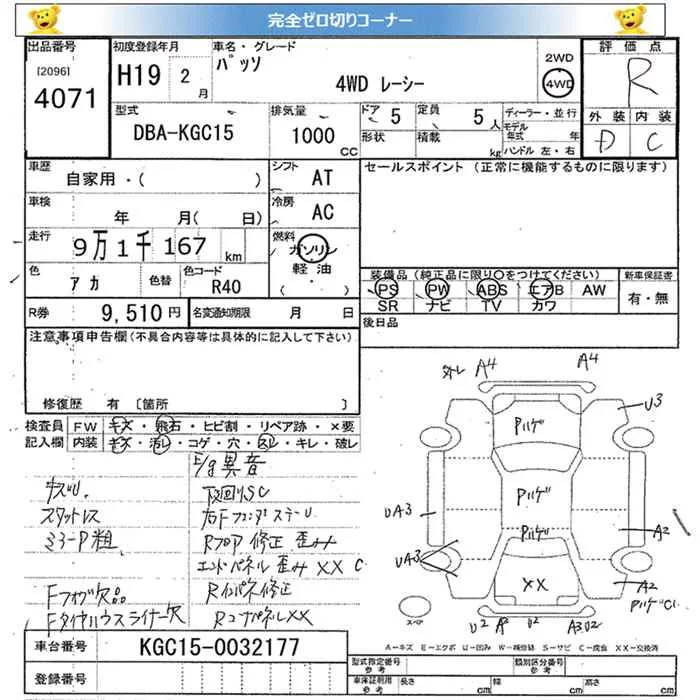 完全ゼロ切りコーナー
出品番号 初度登録年月 車名・グレード 2WD 評価点
[2096] 4071 H19 2月 パッソ 4WD レーシー 4WD R
外装 内装
D C
型式 排気量 ドア 5 定員 5人 ディーラー・並行
DBA-KGC15 1000 CC 形状 積載 kg モデル年式 年
ハンドル 左・右
車歴 シフト セールスポイント (正常に機能するものに限ります)
自家用・( ) AT
車検 年 月( 日) 冷房 AC
走行 9万1千167 km 燃料 ガソリン
軽油
( ・ )
色 アカ 色替 色コード R40
装備品 (純正品に限り○をつけてください) 新車保証書
PS PW ABS エアB AW 有・無
SR ナビ TV カワ
R券 9,510円 名変通知期限 月 日 後日品
注意事項申告欄 (不具合内容等は具体的に記入して下さい)
修復歴 有 [箇所 ]
検査員 FW キズ・飛石・ヒビ割・リペア跡・×要
記入欄 内装 キズ・汚レ・コゲ・穴・スレ・キレ・破レ
E/g異音
キズU 下回りSC
スタットレス 右Fフェンダステー U
ミラーP粗 Rフロア 修正 歪み
エンドパネル 歪み XX C
Fフォグ欠品 Rインパネ修正
Fタイヤハウスライナー欠 RコーナパネルXX
外レ A4 A4
U3
Pハゲ
Pハゲ
UA3 Pハゲ A2
UA3 XX A2
PハゲC1
スペア U2 A2 U2 A3 U2
A=キズ E=エクボ U=凹み W=補修跡 S=サビ C=腐食 XX=交換済
車台番号 KGC15-0032177
登録番号
型式指定番号 参考 類別区分番号 参考
車庫証明用 参考 長さ cm 幅 cm 高さ cm